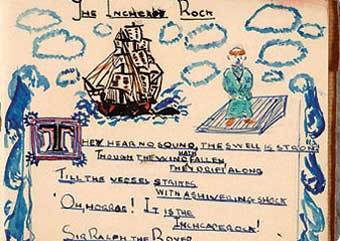 THE INCHCAPE ROCK
THEY HEAR NO SOUND, THE SWELL IS STRONG
THOUGH THE WIND HATH FALLEN
THEY DRIFT ALONG
TILL THE VESSEL STRIKES
WITH A SHIVERING SHOCK
'OH, HORRAS! IT IS THE
INCHCAPE ROCK!
SIR RALPH THE ROVER